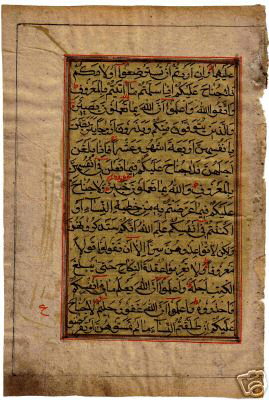 عليهما وان اردتم ان تسترضعوا اولادكم
فلا جناح عليكم اذا سلمتم ما اتيتم بالمعروف
واتقوا الله واعلموا ان الله بما تعملون بصير
والذين يتوفون منكم ويذرون ازواجا يتربصن
بانفسهن اربعة اشهر وعشرا فاذا بلغن
اجلهن فلا جناح عليكم فيما فعلن في انفسهن
بالمعروف والله بما تعملون خبير ولا جناح
عليكم فيما عرضتم به من خطبة النساء او
اكننتم في انفسكم علم الله انكم ستذكرونهن
ولكن لا تواعدوهن سرا الا ان تقولوا قولا
معروفا ولا تعزموا عقدة النكاح حتى يبلغ
الكتاب اجله واعلموا ان الله يعلم ما في انفسكم
فاحذروه واعلموا ان الله غفور حليم لا جناح
عليكم ان طلقتم النساء ما لم تمسوهن او تفرضوا
ع